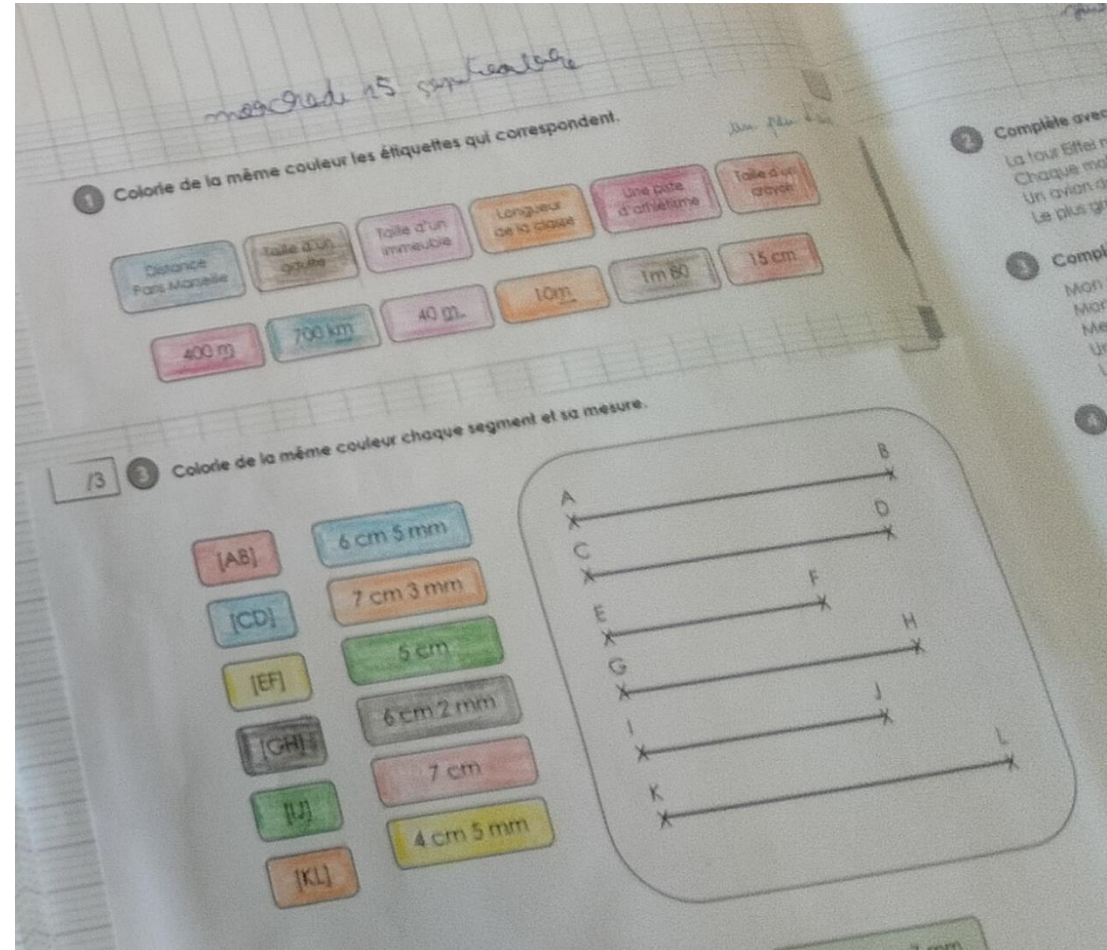 1 Colorie de la même couleur les étiquettes qui correspondent.
Distance Paris Marseille
Taille d'un adulte
Taille d'un immeuble
Longueur de la classe
Une piste d'athlétisme
Taille d'un crayon
400 m
700 km
40 m
10m
1m 80
15 cm
/3
3 Colorie de la même couleur chaque segment et sa mesure.
[AB]
[CD]
[EF]
[GH]
[IJ]
[KL]
6 cm 5 mm
7 cm 3 mm
5 cm
6 cm 2 mm
7 cm
4 cm 5 mm
A B
C D
E F
G H
I J
K L
2 Complète avec
La tour Eiffel
Chaque
Un avion
Le plus
3
Mon
4